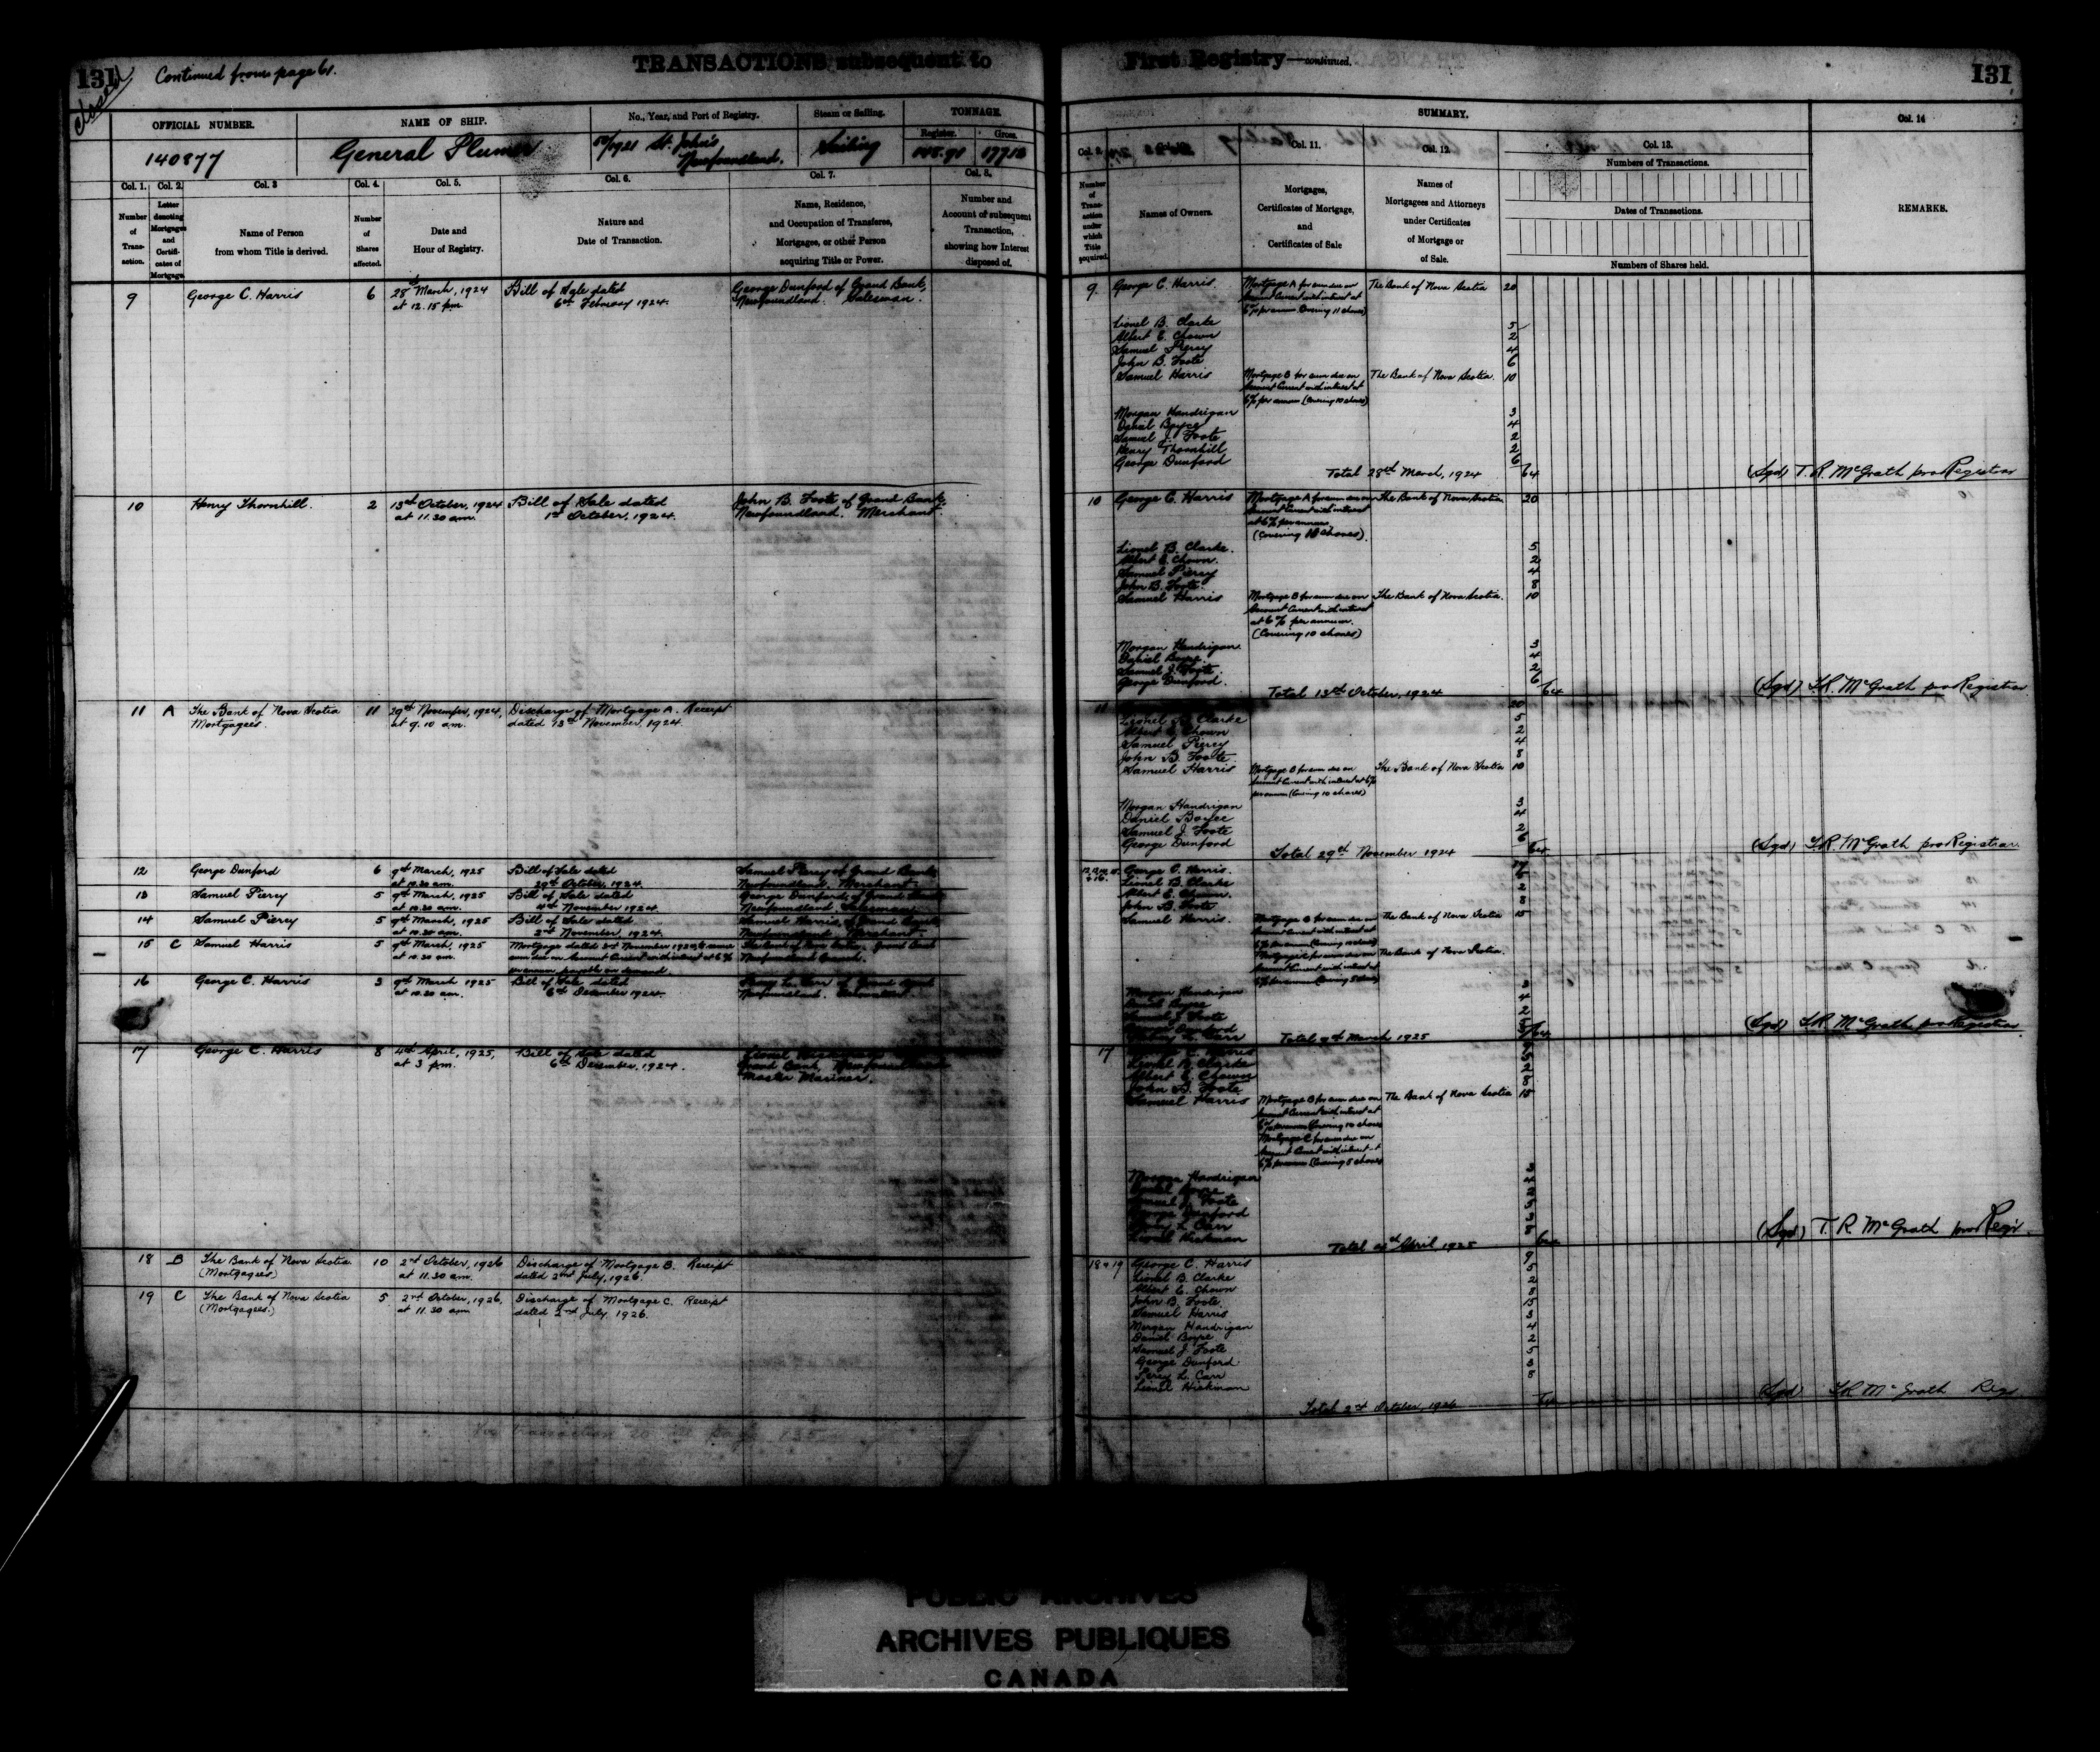 131
Closed
Continued from page 61.
TRANSACTIONS subsequent to
OFFICIAL NUMBER.
NAME OF SHIP.
No., Year, and Port of Registry.
Steam or Sailing.
TONNAGE.
Register.
Gross.
140877
General Plumer
/1921 St. John's
Newfoundland.
Sailing
Col. 1.
Col. 2.
Col. 3
Col. 4.
Col. 5.
Col. 6.
Col. 7.
Col. 8.
Number of Transaction.
Letter denoting Mortgages and Certificates of Mortgage.
Name of Person
from whom Title is derived.
Number of Shares affected.
Date and
Hour of Registry.
Nature and
Date of Transaction.
Name, Residence,
and Occupation of Transferee,
Mortgagee, or other Person
acquiring Title or Power.
Number and
Account of subsequent
Transaction,
showing how Interest
disposed of.
9 George C. Harris 6 28th March, 1924 Bill of Sale dated George Dunford of Grand Bank,
at 12.15 pm. 6th February 1924. Newfoundland. Salesman.
10 Henry Thornhill. 2 13th October, 1924 Bill of Sale dated John B. Foote of Grand Bank
at 11.30 am. 1st October, 1924. Newfoundland. Merchant.
11 A The Bank of Nova Scotia 11 29th November, 1924, Discharge of Mortgage A. Receipt
Mortgagees. at 9.10 am. dated 13th November, 1924.
12 George Dunford 6 9th March, 1925 Bill of Sale dated Samuel Piercy of Grand Bank
at 10.30 am. 29th October, 1924. Newfoundland. Merchant.
13 Samuel Piercy 5 9th March, 1925 Bill of Sale dated George Dunford of Grand Bank
at 10.30 am. November 1924. Newfoundland. Salesman.
14 Samuel Piercy 5 9th March, 1925 Bill of Sale dated Samuel Harris of Grand Bank
at 10.30 am. November, 1924. Newfoundland. Merchant.
15 C Samuel Harris 5 9th March, 1925 Mortgage dated November 1924 The Bank of Nova Scotia Grand Bank
at 10.30 am. sum due on Account Current with interest at 6% Newfoundland Branch.
per annum payable on demand
16 George C. Harris 3 9th March 1925 Bill of Sale dated Percy L. Carr of Grand Bank
at 10.30 am. 6th December 1924. Newfoundland.
17 George C. Harris 8 4th April, 1925, Bill of Sale dated Lionel Hickman
at 3 pm. 6th December, 1924. Grand Bank, Newfoundland
Master Mariner.
18 B The Bank of Nova Scotia 10 2nd October, 1926 Discharge of Mortgage B. Receipt
(Mortgagees) at 11.30 am. dated 2nd July, 1926.
19 C The Bank of Nova Scotia 5 2nd October, 1926, Discharge of Mortgage C. Receipt
(Mortgagees.) at 11.30 am dated 2nd July 1926.
First Registry—continued.
131
SUMMARY.
Col. 14
Col. 9.
Col. 11.
Col. 12.
Col. 13.
Numbers of Transactions.
Number of Transaction under which Title acquired.
Names of Owners.
Mortgages,
Certificates of Mortgage,
and
Certificates of Sale
Names of
Mortgagees and Attorneys
under Certificates
of Mortgage or
of Sale.
Dates of Transactions.
Numbers of Shares held.
REMARKS.
9. George C. Harris. Mortgage A for sum due on The Bank of Nova Scotia 20
Account Current with interest at
6% per annum (Covering 11 shares)
Lionel B. Clarke 5
Albert E. Chown 2
Samuel Piercy 4
John B. Foote 6
Samuel Harris Mortgage B for sum due on The Bank of Nova Scotia. 10
Account Current with interest at
6% per annum (Covering 10 shares)
Morgan Handrigan 3
Daniel Boyce 4
Samuel J. Foote 2
Henry Thornhill 2
George Dunford 6
Total 28th March, 1924 64 (Sgd) T. R. McGrath pro Registrar
10 George C. Harris Mortgage A for sum due on The Bank of Nova Scotia 20
Account Current with interest
at 6% per annum
(Covering shares).
Lionel B. Clarke. 5
Albert E. Chown. 2
Samuel Piercy 4
John B. Foote. 8
Samuel Harris Mortgage B for sum due on The Bank of Nova Scotia. 10
Account Current with interest
at 6% per annum.
(Covering 10 shares)
Morgan Handrigan. 3
Daniel Boyce. 4
Samuel J. Foote. 2
George Dunford. 6
Total 13th October, 1924 64 (Sgd) T. R. McGrath pro Registrar
11 20
Lionel B. Clarke 5
Albert E. Chown 2
Samuel Piercy 4
John B. Foote 8
Samuel Harris Mortgage B for sum due on The Bank of Nova Scotia 10
Account Current with interest at 6%
per annum (Covering 10 shares)
Morgan Handrigan 3
Daniel Boyce 4
Samuel J. Foote 2
George Dunford 6
Total 29th November 1924 64 (Sgd) T. R. McGrath pro Registrar.
George C. Harris. 17
Lionel B. Clarke 5
Albert E. Chown. 2
John B. Foote 8
Samuel Harris. Mortgage B for sum due on The Bank of Nova Scotia 15
Account Current with interest at
6% per annum (Covering 10 shares)
Mortgage C for sum due on The Bank of Nova Scotia.
Account Current with interest at
6% per annum (Covering 5 shares)
Morgan Handrigan 3
Daniel Boyce 4
Samuel J. Foote 2
George Dunford
Percy L. Carr
Total 9th March 1925 64 (Sgd) T. R. McGrath pro Registrar
17 George C. Harris
Lionel B. Clarke 5
Albert E. Chown 2
John B. Foote 8
Samuel Harris Mortgage B for sum due on The Bank of Nova Scotia 15
Account Current with interest at
6% per annum (Covering 10 shares
Mortgage C for sum due on
Account Current with interest at
6% per annum (Covering 5 shares
Morgan Handrigan 3
Daniel Boyce 4
Samuel J. Foote 2
George Dunford 5
Percy L. Carr 3
Lionel Hickman 8
Total 4th April 1925 64 (Sgd) T. R McGrath pro Regr.
18 & 19 George C. Harris 9
Lionel B. Clarke 5
Albert E. Chown 2
John B. Foote 8
Samuel Harris 15
Morgan Handrigan 3
Daniel Boyce 4
Samuel J. Foote 2
George Dunford 5
Percy L. Carr 3
Lionel Hickman 8
Total 2nd October, 1926 64 (Sgd) T. R McGrath Regr
PUBLIC ARCHIVES
ARCHIVES PUBLIQUES
CANADA